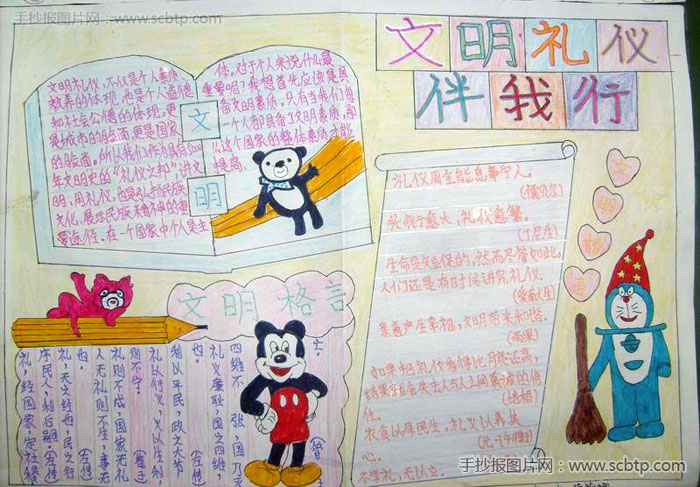 手抄报图片网：www.scbtp.com
文明礼仪
伴我行
文明礼仪，不仅是个人素质、
教养的体现，也是个人道德
和社会公德的体现。更
是城市的脸面，更是国家
的脸面。所以我们作为具有5000
年文明史的“礼仪之邦”，讲文
明，用礼仪，也是弘扬民族
文化、展示民族精神的重
要途径。在一个国家中个人是主
文
明
体。对于个人来说什么最
重要呢？我想首先应该是具
备文明素质。只有当我们每
一个人都具备了文明素质，那
么这个国家的整体素质才能
提高。
礼仪周全能息事宁人。
（儒贝尔）
头衔愈大，礼仪愈繁。
（丁尼生）
生命是短促的，然而尽管如此，
人们还是有时间讲究礼仪。
（爱献生）
亲善产生幸福，文明带来和谐。
（雨果）
如果把礼仪看得比月亮还高，
结果就会失去人与人之间真诚的信
任。
（培根）
衣食以厚民生，礼义以养其
心。
（元·许衡）
不学礼，无以立。
文明格言
四维不张，国乃灭
亡。
礼义廉耻，国之四维，
也。
利以平民，政之大节
礼以行义，义以生利，
则不宁。
礼则不成，国家无礼
人无礼则不生，事无
也。
礼，天之经也，民之行
序民人，利后嗣。（左传）
礼，经国家，定社稷
手抄报图片网：www.scbtp.com